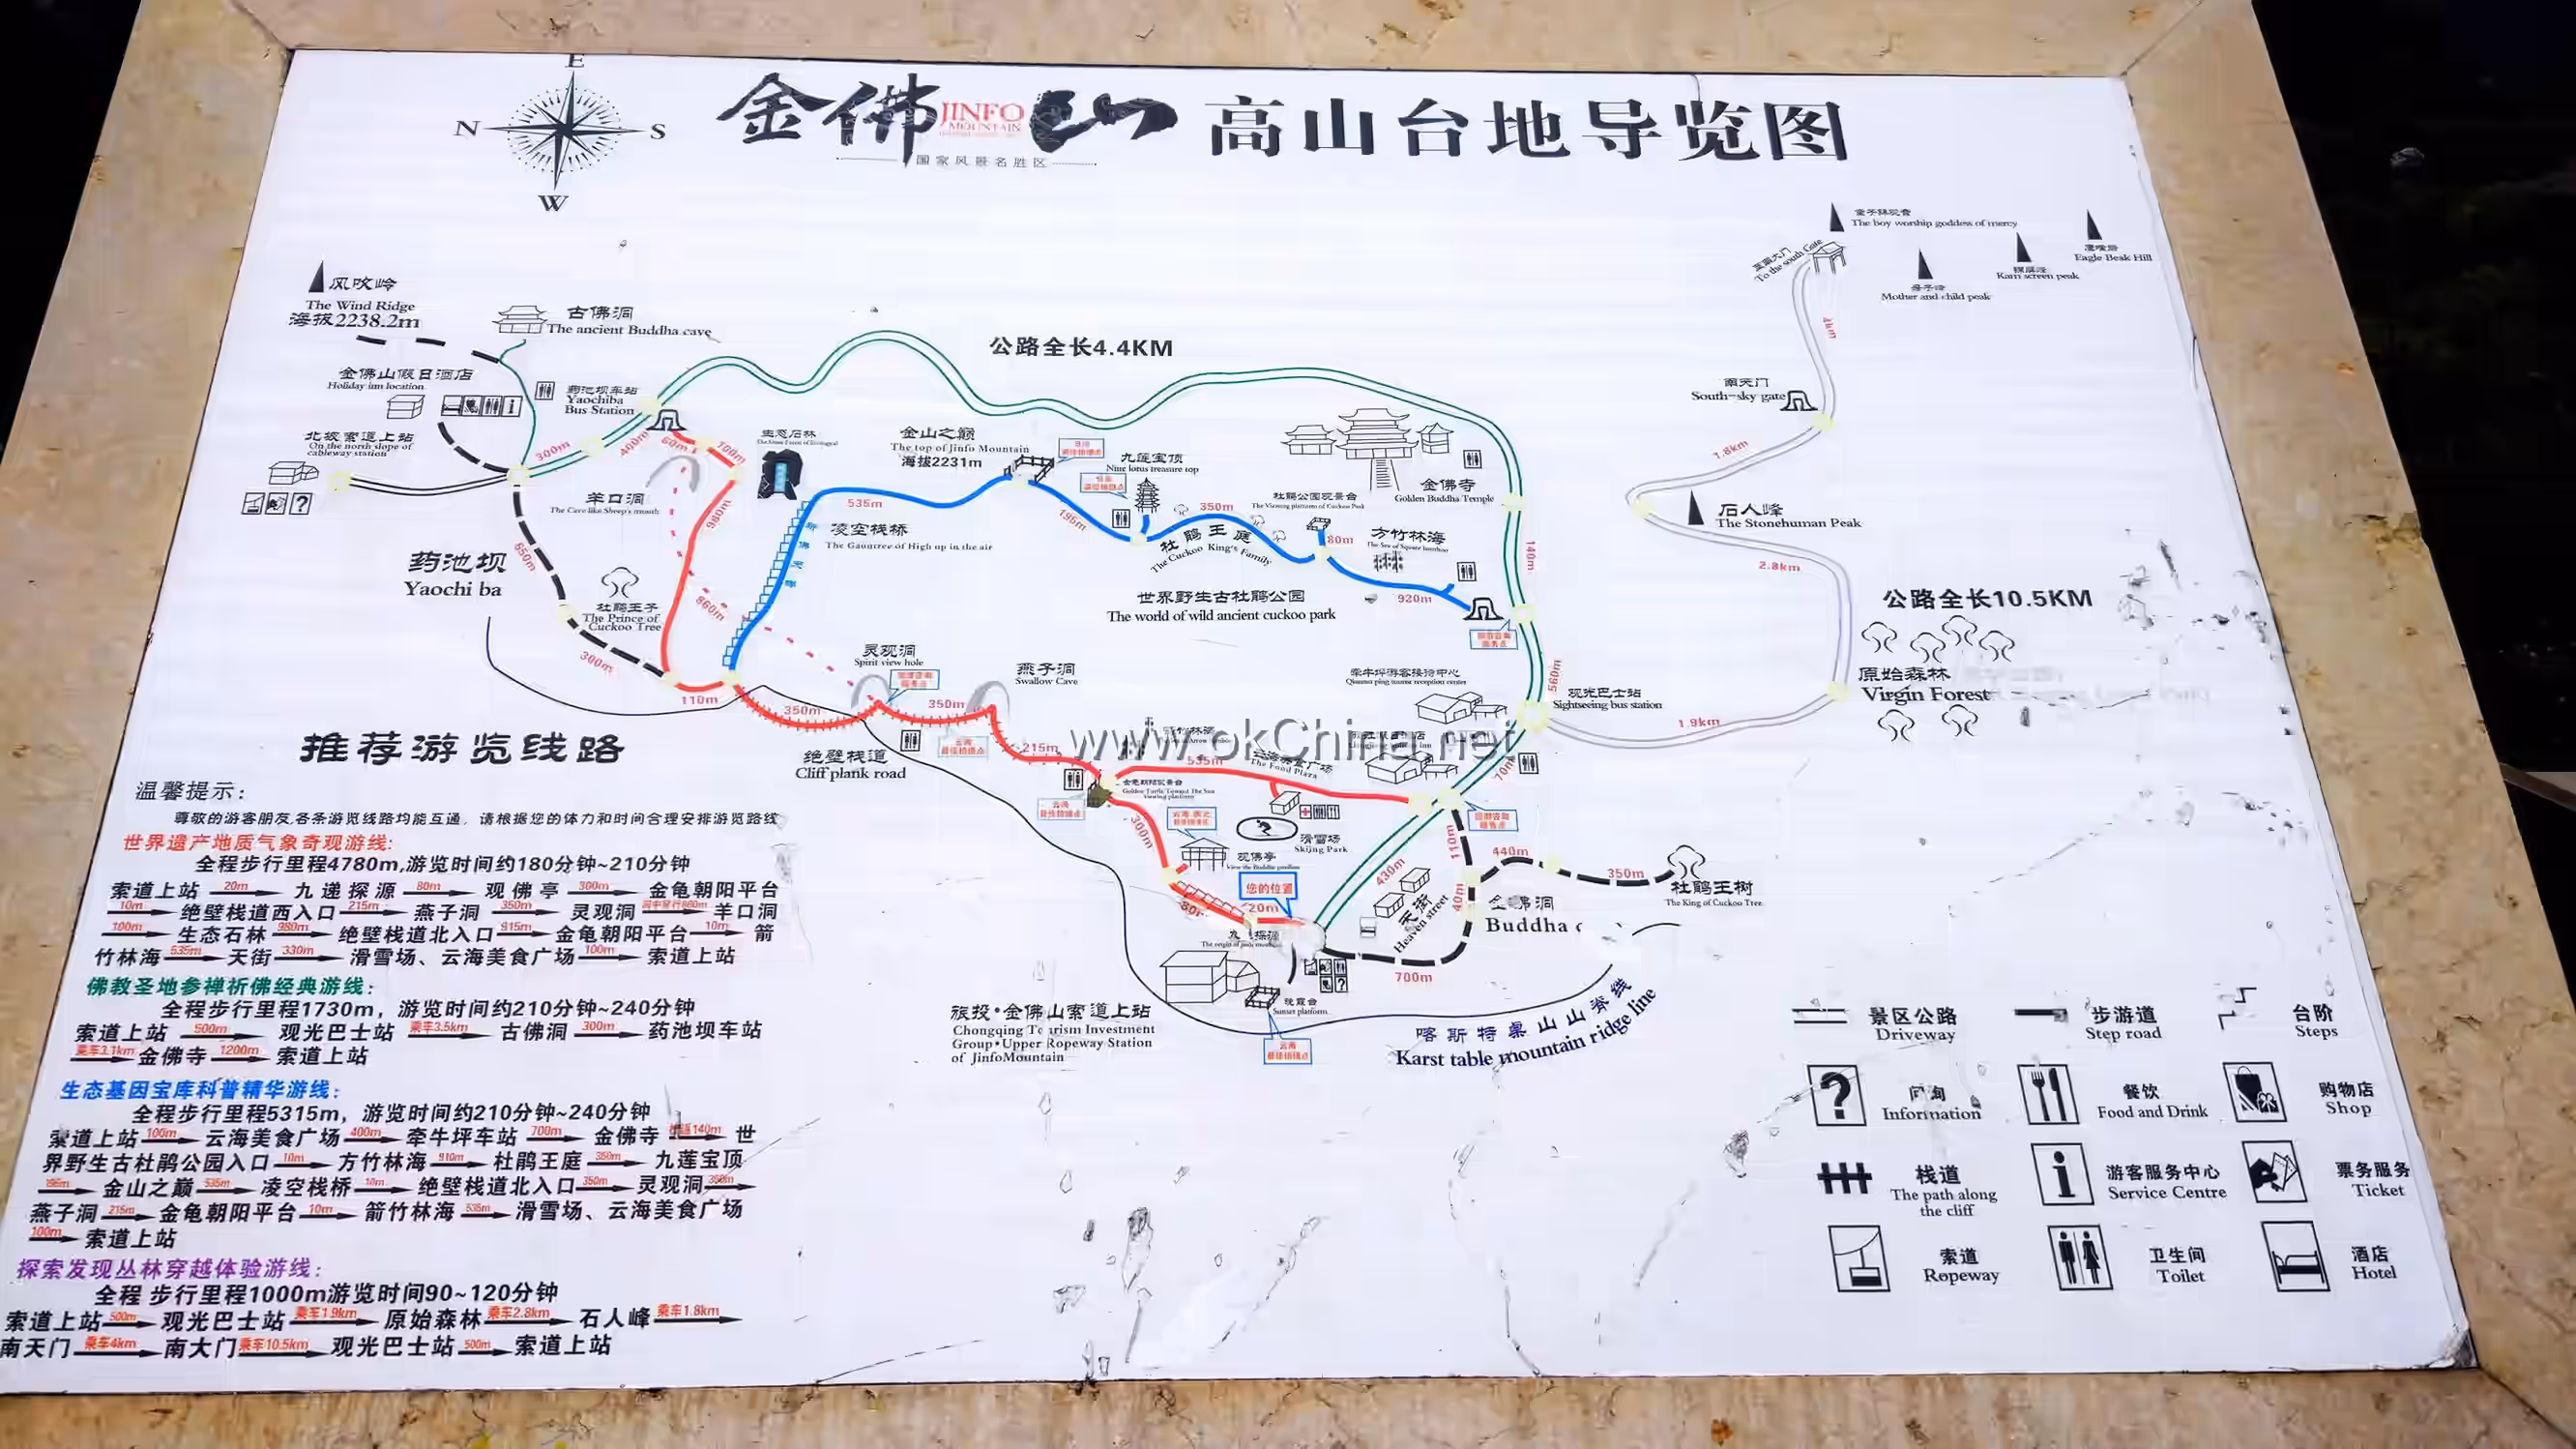 E
N
S
W
金佛山
JINFO
MOUNTAIN
国家风景名胜区
高山台地导览图
The boy worship goddess of mercy
To the south Gate
Eagle Beak Hill
Mother and child peak
4km
风吹岭
The Wind Ridge
海拔2238.2m
古佛洞
The ancient Buddha cave
公路全长4.4KM
金佛山假日酒店
Holiday inn location
药池坝车站
Yaochiba
Bus Station
南天门
South-sky gate
北坡索道上站
On the north slope of
cableway station
300m
400m
60m
100m
生态石林
金山之巅
The top of Jinfo Mountain
海拔2231m
九莲宝顶
Nine lotus treasure top
金佛寺
Golden Buddha Temple
1.8km
羊口洞
The Cave like Sheep's mouth
980m
535m
凌空栈桥
The Gauntree of High up in the air
195m
350m
杜鹃王庭
The Cuckoo King's Family
杜鹃公园观景台
The Viewing platform of Cuckoo Park
80m
方竹林海
920m
140m
石人峰
The Stonehuman Peak
2.8km
药池坝
Yaochi ba
650m
杜鹃王子
The Prince of
Cuckoo Tree
860m
世界野生古杜鹃公园
The world of wild ancient cuckoo park
公路全长10.5KM
300m
110m
灵观洞
Spirit view hole
燕子洞
Swallow Cave
牵牛坪游客接待中心
560m
观光巴士站
Sightseeing bus station
原始森林
Virgin Forest
1.9km
350m
350m
绝壁栈道
Cliff plank road
215m
www.okChina.net
535m
The Food Plaza
70m
金龟朝阳观景台
Golden Turtle Toward The Sun
viewing platform
300m
观佛亭
滑雪场
Skiing Park
您的位置
20m
430m
110m
440m
350m
杜鹃王树
The King of Cuckoo Tree
40m
天街
Heaven street
佛洞
Buddha
700m
旅投·金佛山索道上站
Chongqing Tourism Investment
Group·Upper Ropeway Station
of JinfoMountain
Sunset platform
喀斯特桌山山脊线
Karst table mountain ridge line
推荐游览线路
温馨提示:
尊敬的游客朋友,各条游览线路均能互通,请根据您的体力和时间合理安排游览路线
世界遗产地质气象奇观游线:
全程步行里程4780m,游览时间约180分钟~210分钟
索道上站 20m 九递探源 80m 观佛亭 300m 金龟朝阳平台
10m 绝壁栈道西入口 215m 燕子洞 350m 灵观洞 羊口洞
100m 生态石林 980m 绝壁栈道北入口 915m 金龟朝阳平台 10m 箭
竹林海 535m 天街 330m 滑雪场、云海美食广场 100m 索道上站
佛教圣地参禅祈佛经典游线:
全程步行里程1730m，游览时间约210分钟~240分钟
索道上站 500m 观光巴士站 乘车3.5km 古佛洞 300m 药池坝车站
乘车3.1km 金佛寺 1200m 索道上站
生态基因宝库科普精华游线:
全程步行里程5315m，游览时间约210分钟~240分钟
索道上站 100m 云海美食广场 400m 牵牛坪车站 700m 金佛寺 140m 世
界野生古杜鹃公园入口 10m 方竹林海 910m 杜鹃王庭 350m 九莲宝顶
195m 金山之巅 535m 凌空栈桥 10m 绝壁栈道北入口 350m 灵观洞 350m
燕子洞 215m 金龟朝阳平台 10m 箭竹林海 535m 滑雪场、云海美食广场
100m 索道上站
探索发现丛林穿越体验游线:
全程 步行里程1000m游览时间90~120分钟
索道上站 500m 观光巴士站 乘车1.9km 原始森林 乘车2.8km 石人峰 乘车1.8km
南天门 乘车4km 南大门 乘车10.5km 观光巴士站 500m 索道上站
景区公路
Driveway
步游道
Step road
台阶
Steps
问询
Information
餐饮
Food and Drink
购物店
Shop
栈道
The path along
the cliff
游客服务中心
Service Centre
票务服务
Ticket
索道
Ropeway
卫生间
Toilet
酒店
Hotel